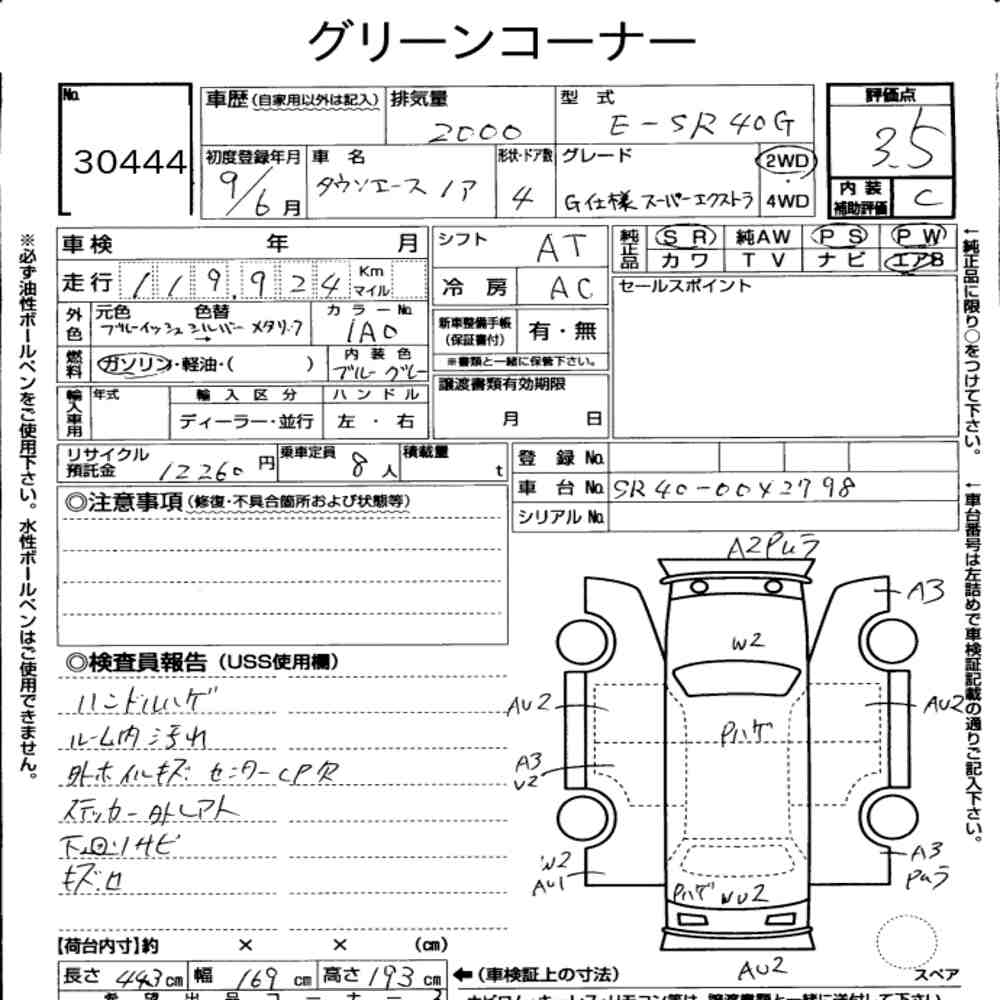 グリーンコーナー
No. 30444
車歴(自家用以外は記入) 排気量 2000 型式 E-SR40G
評価点 3.5
初度登録年月 9/6月 車名 タウンエース ノア 形状・ドア数 4 グレード G仕様 スーパーエクストラ 2WD 4WD
内装補助評価 C
車検 年 月
シフト AT
純正品 SR 純AW PS PW
カワ TV ナビ エアB
走行 119,924 Km マイル
冷房 AC
セールスポイント
外色 元色 ブルーイッシュシルバーメタリック 色替 → カラーNo. 1A0
新車整備手帳(保証書付) 有・無
※書類と一緒に保管下さい。
燃料 ガソリン・軽油・( ) 内装色 ブルー グレー
譲渡書類有効期限 月 日
輸入車用 年式 輸入区分 ディーラー・並行 ハンドル 左・右
リサイクル預託金 12260円 乗車定員 8人 積載量 t
登録No.
車台No. SR40-0042798
シリアルNo.
◎注意事項(修復・不具合箇所および状態等)
◎検査員報告(USS使用欄)
ハンドルハゲ
ルーム内汚れ
外ホイルキズ センターCP欠
ステッカー外しアト
下回りサビ
A2Puラ
A3
W2
AU2
AU2
Pハゲ
A3
U2
W2
AU1
A3
Puラ
Pハゲ WU2
AU2
スペア
【荷台内寸】約 × × (cm)
長さ 443cm 幅 169cm 高さ 193cm
←(車検証上の寸法)
※必ず油性ボールペンをご使用下さい。水性ボールペンはご使用できません。
←純正品に限り○をつけて下さい。
←車台番号は左詰めで車検証記載の通りご記入下さい。